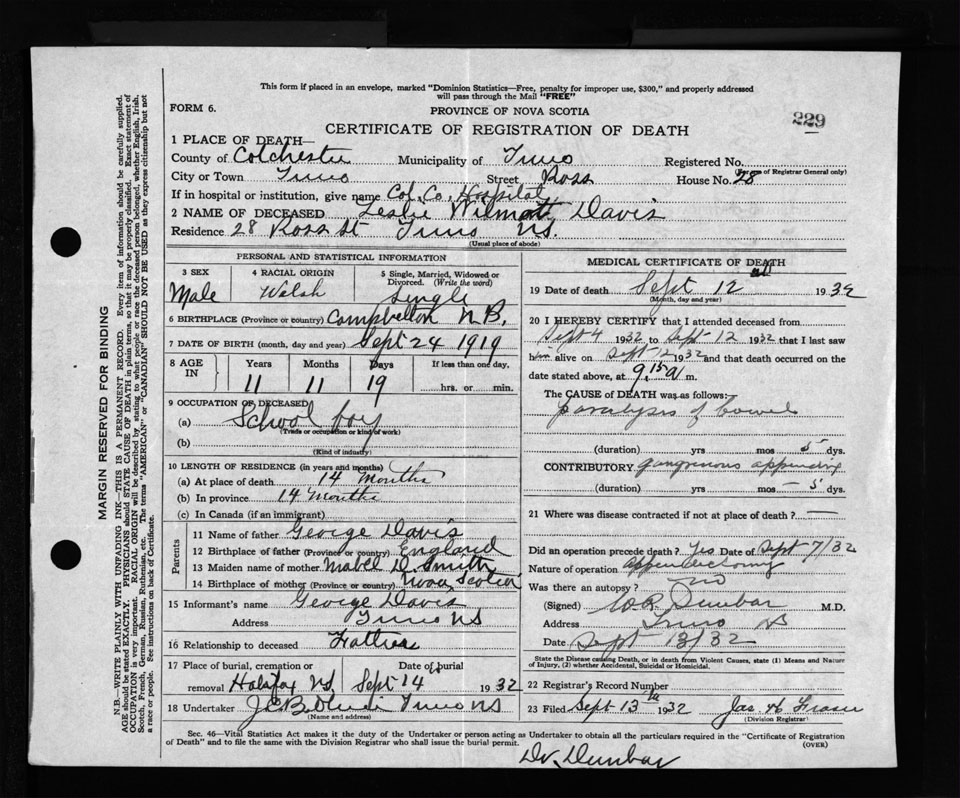 This form if placed in an envelope, marked "Dominion Statistics—Free, penalty for improper use, $300," and properly addressed
will pass through the Mail "FREE"
FORM 6.
PROVINCE OF NOVA SCOTIA
229
CERTIFICATE OF REGISTRATION OF DEATH
1 PLACE OF DEATH—
County of Colchester Municipality of Truro Registered No.
(For use of Registrar General only)
City or Town Truro Street Ross House No. 28
If in hospital or institution, give name Col. Co. Hospital
2 NAME OF DECEASED Leslie Wilmott Davis
Residence 28 Ross St Truro NS.
(Usual place of abode)
PERSONAL AND STATISTICAL INFORMATION
3 SEX 4 RACIAL ORIGIN 5 Single, Married, Widowed or
Divorced. (Write the word)
Male Walsh Single
6 BIRTHPLACE (Province or country) Campbelton N B.
7 DATE OF BIRTH (month, day and year) Sept 24 1919
8 AGE IN Years Months Days If less than one day.
11 11 19 hrs. or min.
9 OCCUPATION OF DECEASED
(a) School boy
(Trade or occupation or kind of work)
(b)
(Kind of industry)
10 LENGTH OF RESIDENCE (in years and months)
(a) At place of death 14 Months
(b) In province 14 Months
(c) In Canada (if an immigrant)
Parents
11 Name of father George Davis
12 Birthplace of father (Province or country) England
13 Maiden name of mother Mabel D. Smith
14 Birthplace of mother (Province or country) Nova Scotia
15 Informant's name George Davis
Address Truro NS
16 Relationship to deceased Father
17 Place of burial, cremation or Date of burial
removal Halifax NS. Sept 14 1932
18 Undertaker Truro NS
(Name and address)
MEDICAL CERTIFICATE OF DEATH
19 Date of death Sept 12 1932
(Month, day and year)
20 I HEREBY CERTIFY that I attended deceased from
Sept 4 1932 to Sept 12 1932 that I last saw
him alive on Sept 12 1932 and that death occurred on
date stated above, at 9.15 a m.
The CAUSE of DEATH was as follows:
paralysis of bowel
(duration) yrs mos 5 dys.
CONTRIBUTORY gangrenous appendix
(duration) yrs — mos — 5 dys.
21 Where was disease contracted if not at place of death? —
Did an operation precede death? Yes Date of Sept 7/32
Nature of operation Appendectomy
Was there an autopsy? no
(Signed) Dunbar M.D.
Address Truro NS
Date Sept 13/32
State the Disease causing Death, or in death from Violent Causes, state (1) Means and Nature
of Injury, (2) whether Accidental, Suicidal or Homicidal.
22 Registrar's Record Number
23 Filed Sept 13th 1932 Jas
(Division Registrar)
Sec. 46—Vital Statistics Act makes it the duty of the Undertaker or person acting as Undertaker to obtain all the particulars required in the "Certificate of Registration
of Death" and to file the same with the Division Registrar who shall issue the burial permit.
(OVER)
Dr. Dunbar
MARGIN RESERVED FOR BINDING
N.B.—WRITE PLAINLY WITH UNFADING INK—THIS IS A PERMANENT RECORD. Every item of information should be carefully supplied.
AGE should be stated EXACTLY. PHYSICIANS should STATE CAUSE OF DEATH in plain terms, so that it may be properly classified. Exact statement of
OCCUPATION is very important. RACIAL ORIGIN will be described by stating to what people or race the deceased person belonged, whether English, Irish,
Scotch, French, German, Russian, Ruthenian, etc. The terms "AMERICAN" or "CANADIAN" SHOULD NOT BE USED as they express citizenship but not
a race or people. See instructions on back of Certificate.